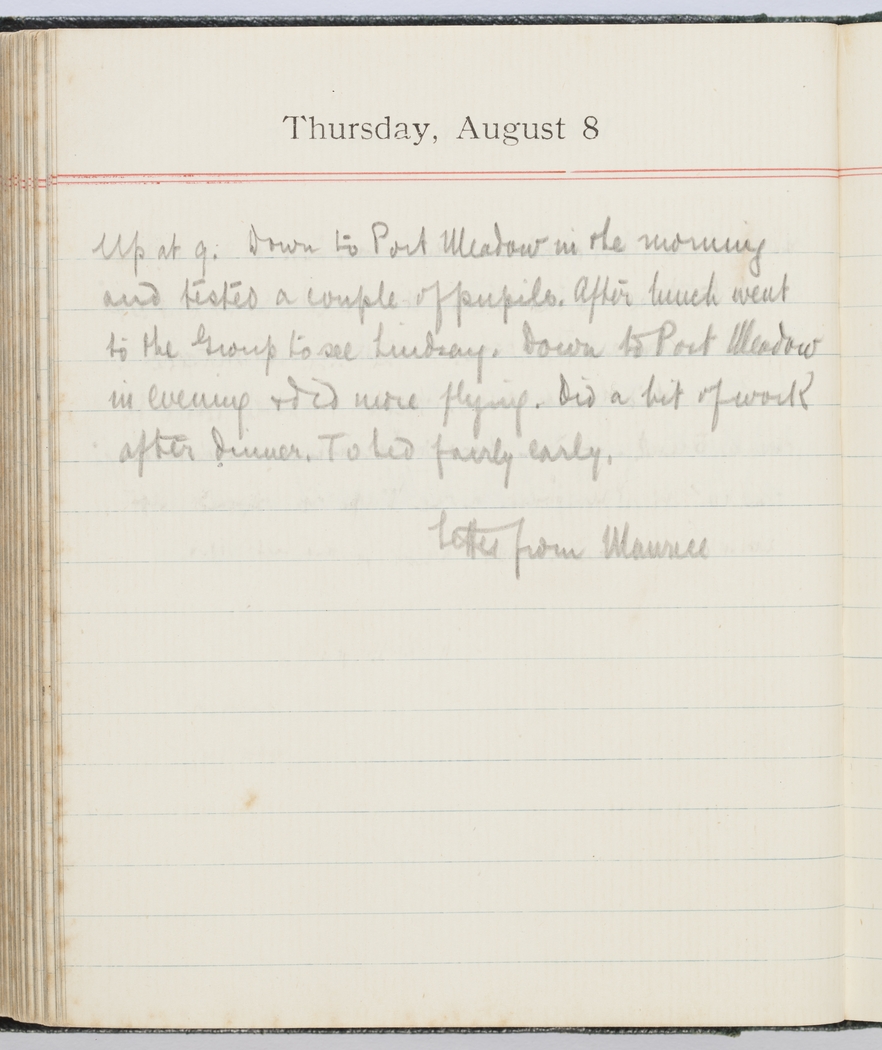 Thursday, August 8
Up at 9. Down to Port Meadow in the morning
and tested a couple of pupils. After lunch went
to the Group to see Lindsay. Down to Port Meadow
in evening & did more flying. Did a bit of work
after dinner. To bed fairly early.
Letter from Maurice